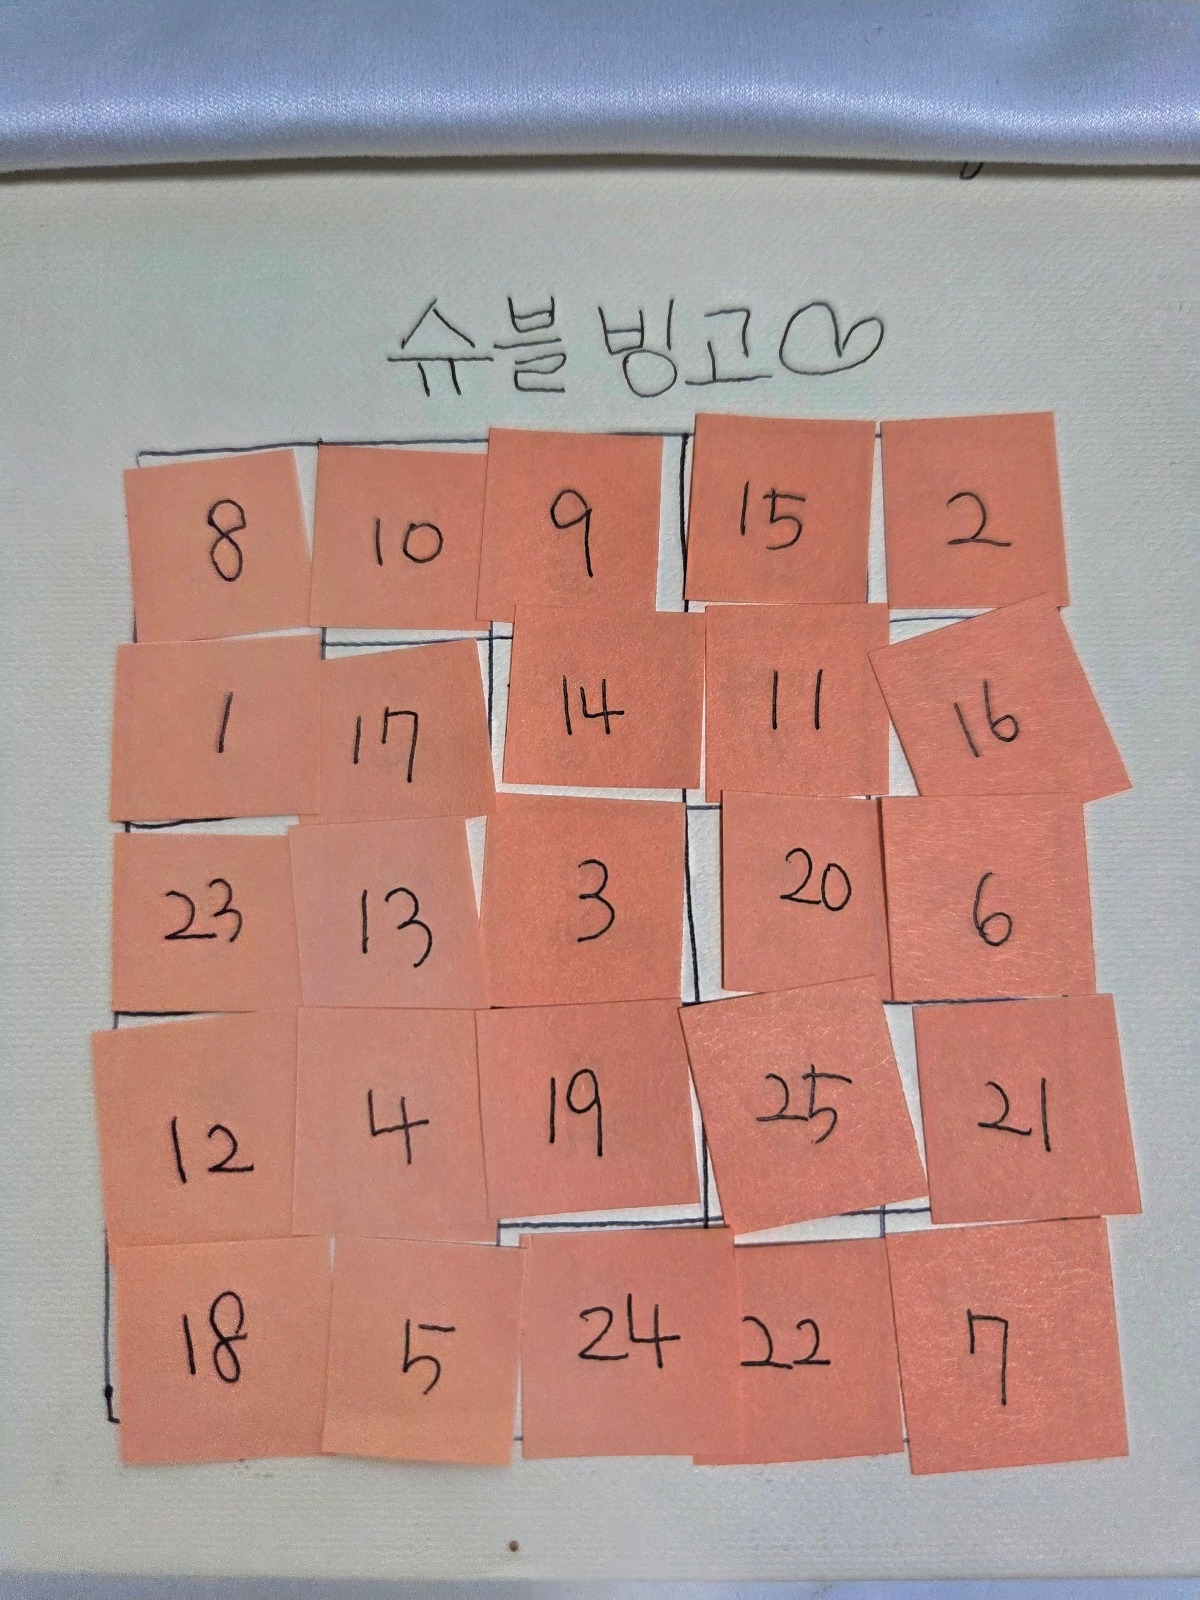 슈블 빙고♡
8 10 9 15 2
1 17 14 11 16
23 13 3 20 6
12 4 19 25 21
18 5 24 22 7